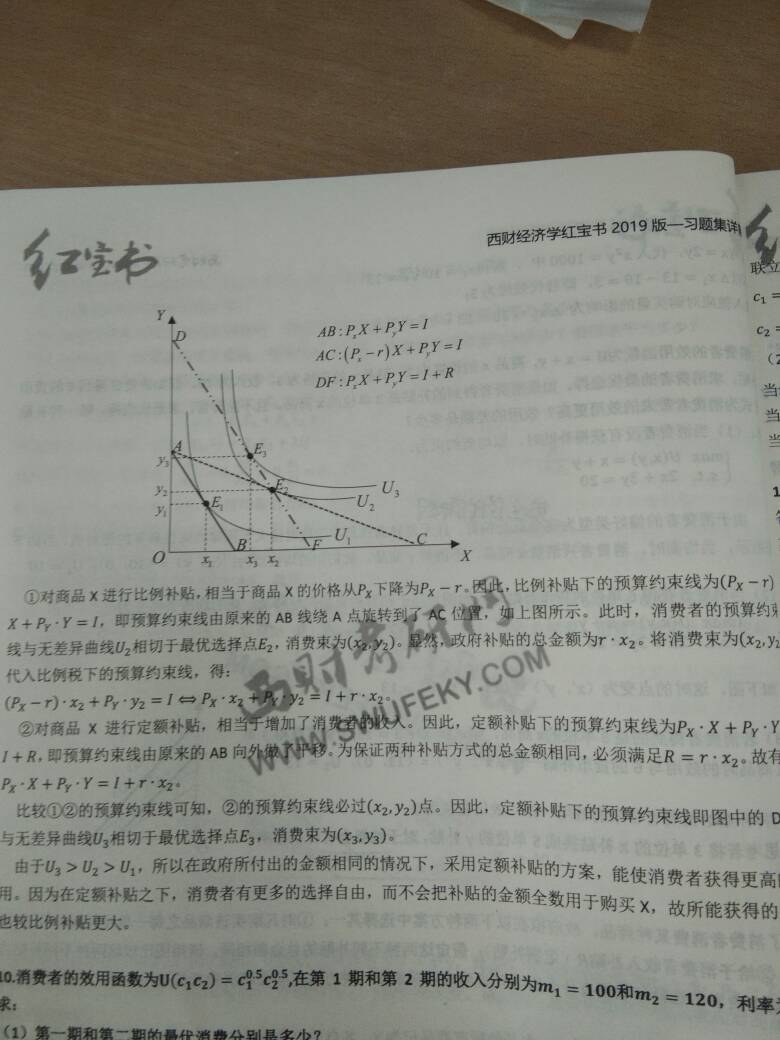 西财经济学红宝书 2019 版—习题集详
红宝书
Y
D
AB:PₓX+PᵧY=I
AC:(Pₓ-r)X+PᵧY=I
DF:PₓX+PᵧY=I+R
A
y₃
E₃
y₂
E₂
U₃
U₂
y₁
E₁
U₁
O
x₁
B
x₃
x₂
F
C
X
①对商品 X 进行比例补贴,相当于商品 X 的价格从Pₓ下降为Pₓ − r。因此,比例补贴下的预算约束线为(Pₓ − r)
X + Pᵧ · Y = I,即预算约束线由原来的 AB 线绕 A 点旋转到了 AC 位置,如上图所示。此时,消费者的预算约束
线与无差异曲线U₂相切于最优选择点E₂,消费束为(x₂,y₂)。显然,政府补贴的总金额为r · x₂。将消费束为(x₂,y₂
代入比例税下的预算约束线,得:
(Pₓ − r) · x₂ + Pᵧ · y₂ = I ⇔ Pₓ · x₂ + Pᵧ · y₂ = I + r · x₂。
②对商品 X 进行定额补贴,相当于增加了消费者的收入。因此,定额补贴下的预算约束线为Pₓ · X + Pᵧ · Y
I + R,即预算约束线由原来的 AB 向外做了平移。为保证两种补贴方式的总金额相同,必须满足R = r · x₂。故有
Pₓ · X + Pᵧ · Y = I + r · x₂。
比较①②的预算约束线可知,②的预算约束线必过(x₂,y₂)点。因此,定额补贴下的预算约束线即图中的 D
与无差异曲线U₃相切于最优选择点E₃,消费束为(x₃,y₃)。
由于U₃ > U₂ > U₁,所以在政府所付出的金额相同的情况下,采用定额补贴的方案,能使消费者获得更高的
用。因为在定额补贴之下,消费者有更多的选择自由,而不会把补贴的金额全数用于购买 X,故所能获得的
也较比例补贴更大。
10.消费者的效用函数为U(c₁c₂) = c₁^0.5 c₂^0.5,在第 1 期和第 2 期的收入分别为m₁ = 100和m₂ = 120,利率为
求:
(1)第一期和第二期的最优消费分别是多少?
西财考研网
WWW.SWUFEKY.COM
联立
c₁ =
c₂ =
(2
当
当